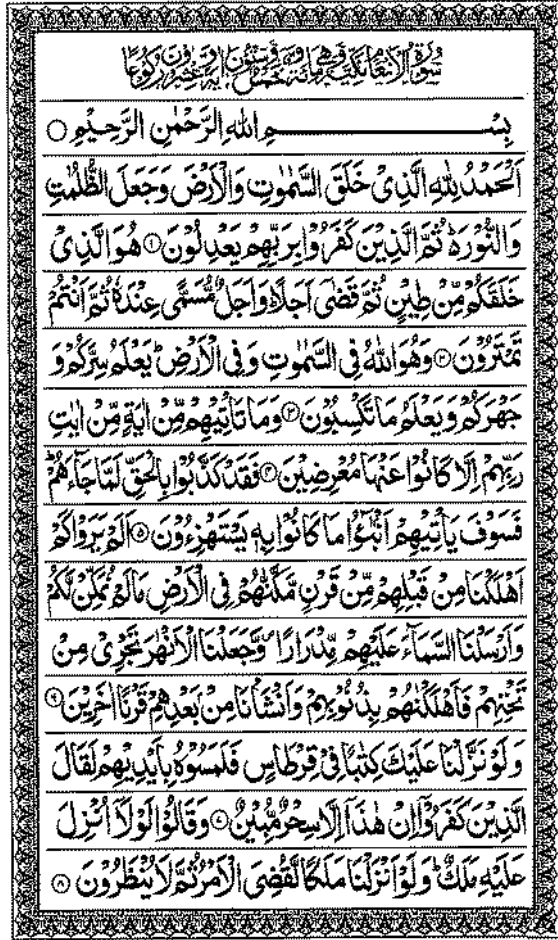 سُوْرَةُ الْاَنْعَامِ مَكِّیَّةٌ وَّهِیَ مِائَةٌ وَّخَمْسٌ وَّسِتُّوْنَ اٰیَةً وَّعِشْرُوْنَ رُكُوْعًا
بِسْمِ اللّٰهِ الرَّحْمٰنِ الرَّحِیْمِ ○
اَلْحَمْدُ لِلّٰهِ الَّذِیْ خَلَقَ السَّمٰوٰتِ وَالْاَرْضَ وَجَعَلَ الظُّلُمٰتِ
وَالنُّوْرَ ؕ ثُمَّ الَّذِیْنَ كَفَرُوْا بِرَبِّهِمْ یَعْدِلُوْنَ ۝۱ هُوَ الَّذِیْ
خَلَقَكُمْ مِّنْ طِیْنٍ ثُمَّ قَضٰۤی اَجَلًا ؕ وَاَجَلٌ مُّسَمًّی عِنْدَهٗ ثُمَّ اَنْتُمْ
تَمْتَرُوْنَ ۝۲ وَهُوَ اللّٰهُ فِی السَّمٰوٰتِ وَفِی الْاَرْضِ ؕ یَعْلَمُ سِرَّكُمْ وَ
جَهْرَكُمْ وَیَعْلَمُ مَا تَكْسِبُوْنَ ۝۳ وَمَا تَاْتِیْهِمْ مِّنْ اٰیَةٍ مِّنْ اٰیٰتِ
رَبِّهِمْ اِلَّا كَانُوْا عَنْهَا مُعْرِضِیْنَ ۝۴ فَقَدْ كَذَّبُوْا بِالْحَقِّ لَمَّا جَآءَهُمْ ؕ
فَسَوْفَ یَاْتِیْهِمْ اَنْۢبٰٓؤُا مَا كَانُوْا بِهٖ یَسْتَهْزِءُوْنَ ۝۵ اَلَمْ یَرَوْا كَمْ
اَهْلَكْنَا مِنْ قَبْلِهِمْ مِّنْ قَرْنٍ مَّكَّنّٰهُمْ فِی الْاَرْضِ مَا لَمْ نُمَكِّنْ لَّكُمْ
وَاَرْسَلْنَا السَّمَآءَ عَلَیْهِمْ مِّدْرَارًا ۪ وَّجَعَلْنَا الْاَنْهٰرَ تَجْرِیْ مِنْ
تَحْتِهِمْ فَاَهْلَكْنٰهُمْ بِذُنُوْبِهِمْ وَاَنْشَاْنَا مِنْۢ بَعْدِهِمْ قَرْنًا اٰخَرِیْنَ ۝۶
وَلَوْ نَزَّلْنَا عَلَیْكَ كِتٰبًا فِیْ قِرْطَاسٍ فَلَمَسُوْهُ بِاَیْدِیْهِمْ لَقَالَ
الَّذِیْنَ كَفَرُوْۤا اِنْ هٰذَاۤ اِلَّا سِحْرٌ مُّبِیْنٌ ۝۷ وَقَالُوْا لَوْلَاۤ اُنْزِلَ
عَلَیْهِ مَلَكٌ ؕ وَلَوْ اَنْزَلْنَا مَلَكًا لَّقُضِیَ الْاَمْرُ ثُمَّ لَا یُنْظَرُوْنَ ۝۸